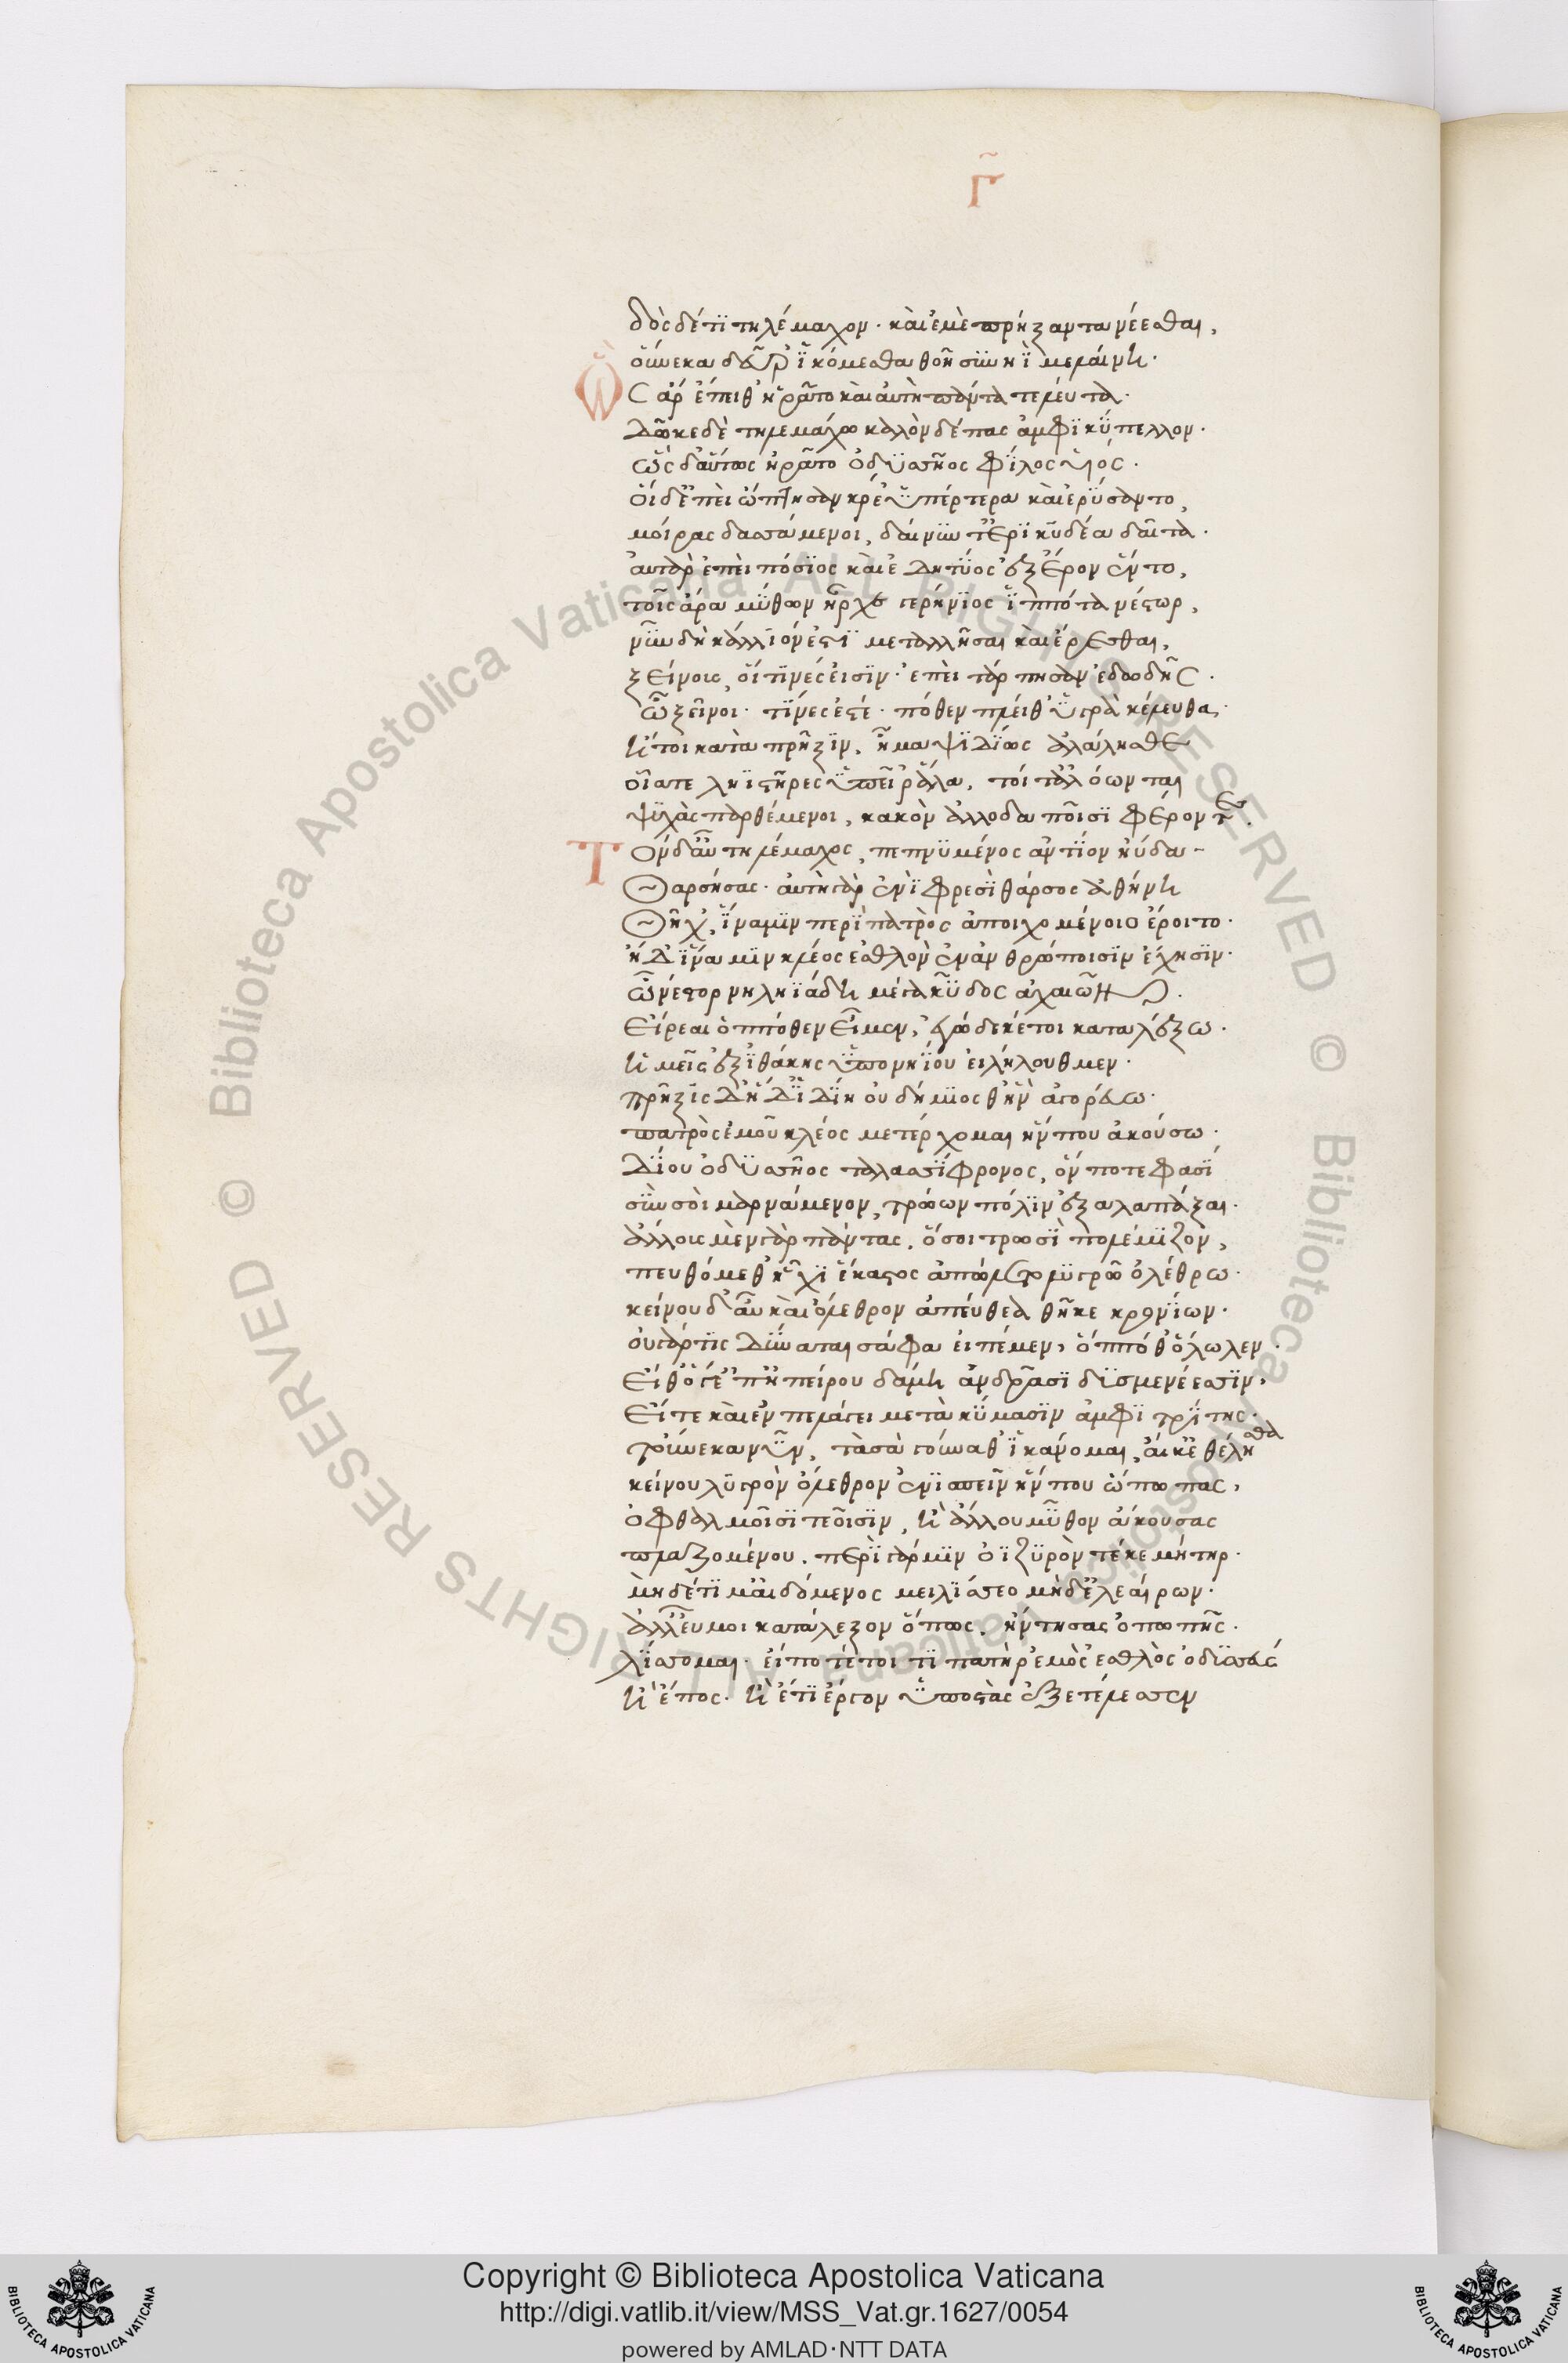 Γ̃
δὸς δέ τι τηλέμαχον· καὶ ἐμὲ πρήξαντα νέεσθαι,
οὕνεκα δεῦρ' ἱκόμεσθα θοῆ σὺν νηῒ μελαίνη·
Ὣς ἄρ' ἔπειθ' ἠρᾶτο καὶ αὐτὴ πάντα τελεύτα·
δῶκε δὲ τηλεμάχω καλὸν δέπας ἀμφικύπελλον·
ὣς δ' αὔτως ἠρᾶτο ὀδυσσῆος φίλος υἱός·
οἱ δ' ἐπεὶ ὤπτησαν κρέ' ὑπέρτερα καὶ ἐρύσαντο,
μοίρας δασσάμενοι, δαίνυντ' ἐρικυδέα δαῖτα·
αὐτὰρ ἐπεὶ πόσιος καὶ ἐδητύος ἐξ ἔρον ἕντο,
τοῖς ἄρα μύθων ἦρχε γερήνιος ἱππότα νέστωρ,
νῦν δὴ κάλλιόν ἐστι μεταλλῆσαι καὶ ἔρεσθαι,
ξείνους, οἵτινές εἰσιν· ἐπεὶ τάρπησαν ἐδωδῆς·
ὦ ξεῖνοι· τίνες ἐστέ· πόθεν πλεῖθ' ὑγρὰ κέλευθα·
ἤ τοι κατὰ πρῆξιν, ἦ μαψιδίως ἀλάλησθε
οἷά τε ληϊστῆρες ὑπεὶρ ἅλα, τοί τ' ἀλόωνται
ψυχὰς παρθέμενοι, κακὸν ἀλλοδαποῖσι φέροντες·
Τὸν δ' αὖ τηλέμαχος, πεπνυμένος ἀντίον ηὔδα–
Θαρσήσας· αὐτὴ γὰρ ἐνὶ φρεσὶ θάρσος ἀθήνη
Θῆχ', ἵνα μιν περὶ πατρὸς ἀποιχομένοιο ἔροιτο·
ἠδ' ἵνα μιν κλέος ἐσθλὸν ἐν ἀνθρώποισιν ἔχησιν·
ὦ νέστορ νηληϊάδη μέγα κῦδος ἀχαιῶν·
Εἴρεαι ὁππόθεν εἰμέν, ἐγὼ δέ κέ τοι καταλέξω·
ἡμεῖς ἐξ ἰθάκης ὑπονηΐου εἰλήλουθμεν·
πρῆξις δ' ἥδ' ἰδίη οὐ δήμιος θ' ἣν ἀγορεύω·
πατρὸς ἐμοῦ κλέος μετέρχομαι ἤν που ἀκούσω·
δίου ὀδυσσῆος ταλασίφρονος, ὅν ποτε φασί
σὺν σοὶ μαρνάμενον, τρώων πόλιν ἐξαλαπάξαι·
ἄλλους μὲν γὰρ πάντας, ὅσοι τρωσὶ πολέμιζον,
πευθόμεθ' ἧχι ἕκαστος ἀπώλετο λυγρῶ ὀλέθρω·
κείνου δ' αὖ καὶ ὄλεθρον ἀπευθέα θῆκε κρονίων·
οὐ γάρ τις δύναται σάφα εἰπέμεν, ὁππόθ' ὄλωλεν·
Εἴθ' ὅγ' ἐπ' ἠπείρου δάμη ἀνδράσι δυσμενέεσσιν,
Εἴτε καὶ ἐν πελάγει μετὰ κύμασιν ἀμφιτρίτης·
τοὔνεκα νῦν, τὰ σὰ γούναθ' ἱκάνομαι, αἴ κ' ἐθέλησθα
κείνου λυγρὸν ὄλεθρον ἐνισπεῖν ἤν που ὄπωπας,
ὀφθαλμοῖσι τεοῖσιν, ἢ ἄλλου μῦθον ἄκουσας
πλαζομένου· περὶ γάρ μιν ὀϊζυρὸν τέκε μήτηρ·
μηδέ τι μ' αἰδόμενος μειλίσσεο μηδ' ἐλεαίρων·
ἀλλ' εὖ μοι κατάλεξον ὅπως, ἤντησας ὀπωπῆς·
λίσσομαι· εἴ ποτέ τοι τι πατὴρ ἐμὸς ἐσθλὸς ὀδυσσεύς
ἢ ἔπος· ἠέ τι ἔργον ὑποστὰς ἐξετέλεσσεν
Copyright © Biblioteca Apostolica Vaticana
http://digi.vatlib.it/view/MSS_Vat.gr.1627/0054
powered by AMLAD·NTT DATA